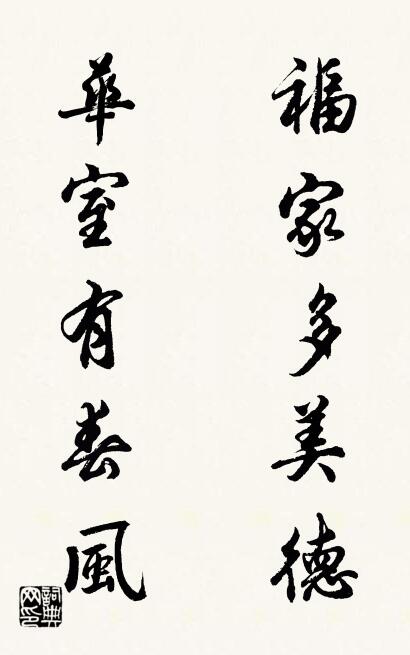 福家多美德
華室有春風
詞典網印